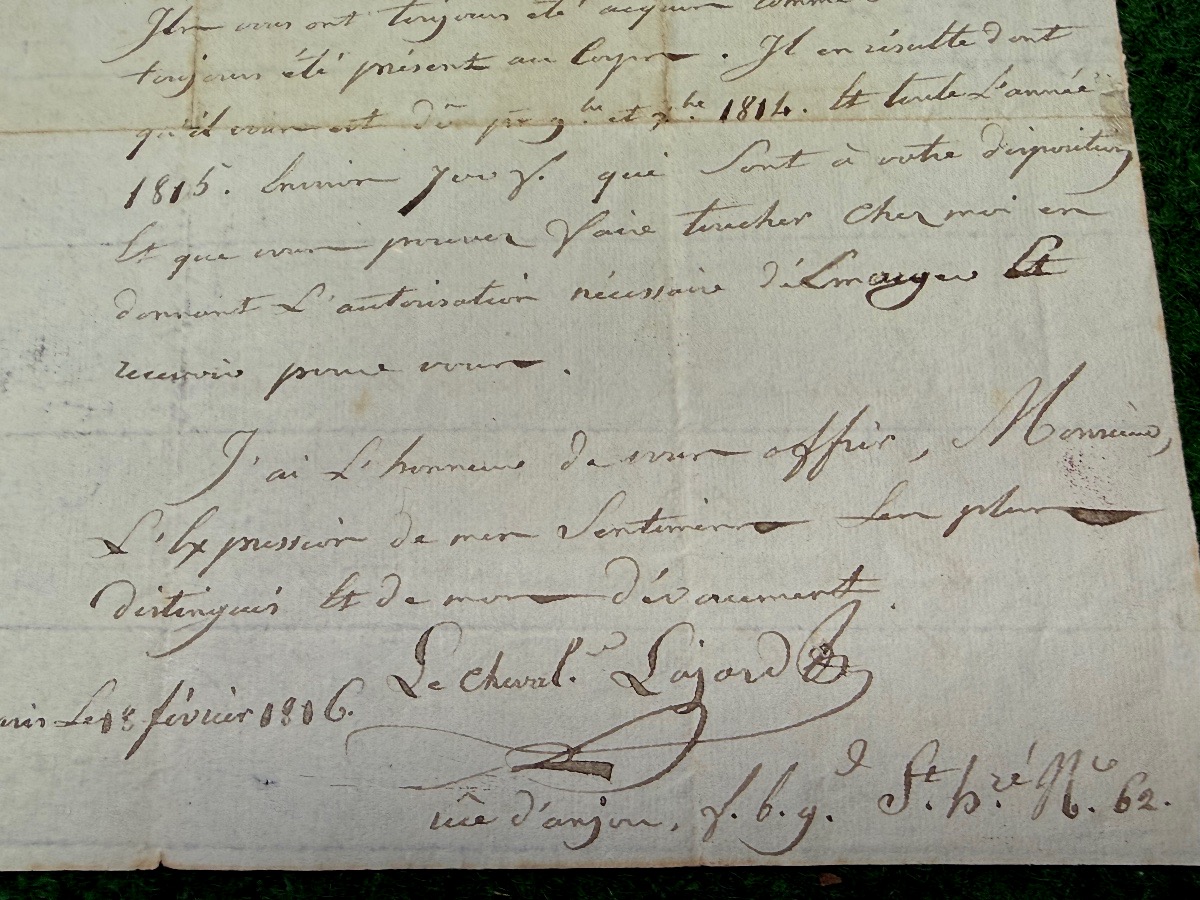 Ils vous ont toujours été acquis comme
toujours été présent au Corps. Il en résulte dont
qu'il vous est dû pr 9bre et Xbre 1814. Et toute L'année
1815. Environ f. qui Sont à votre disposition
Et que vous pouvez faire toucher chez moi en
donnant L'autorisation nécessaire d'Emarger Et
recevoir pour vous.
J'ai L'honneur de vous offrir, Monsieur,
L'Expression de mes Sentimens Les plus
distingués Et de mon dévouement.
Le Cheval.er Lajard
aris Le 18 février 1816.
rüe d'anjou, f. b. g. St. h.ré No. 62.